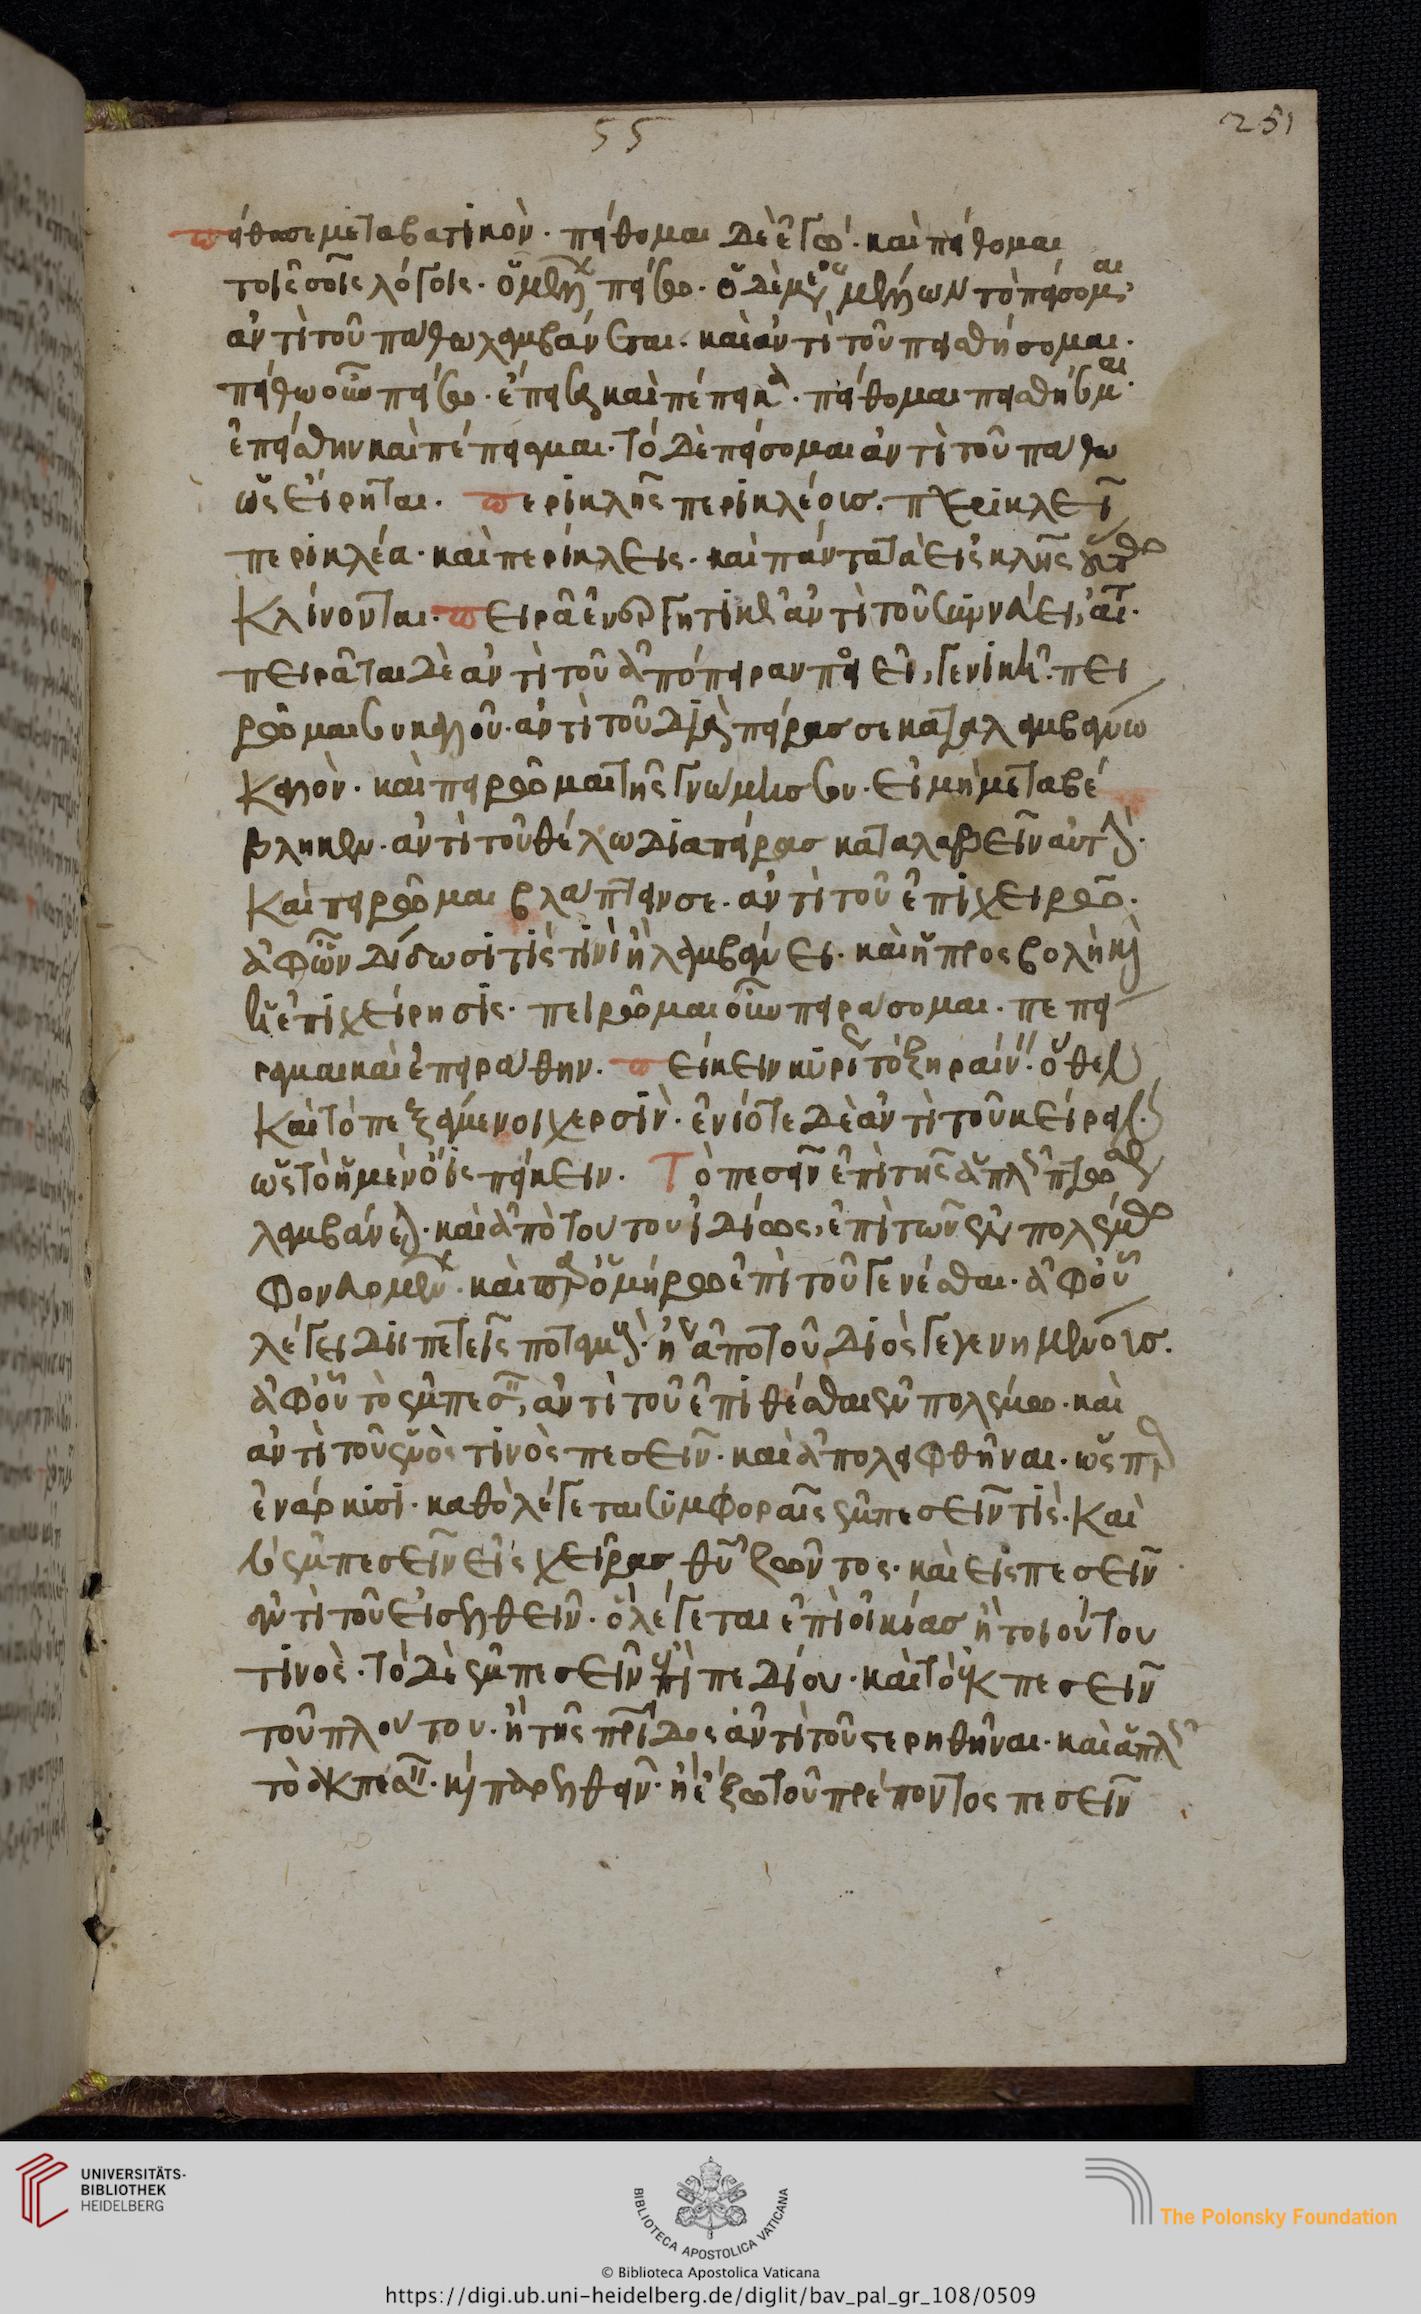 55
251
πείθω σε μεταβατικὸν. πείθομαι δὲ ἐγὼ. καὶ πείθομαι
τοῖς σοῖς λόγοις. πείσω. τὸ πείσομαι
ἀντὶ τοῦ παθω λαμβάνεται. καὶ ἀντὶ τοῦ πεισθήσομαι.
πείθω πείσω. ἔπεισα καὶ πέπεικα. πείθομαι πεισθήσομαι.
ἐπείσθην καὶ πέπεισμαι. τὸ δὲ πείσομαι ἀντὶ τοῦ παθω
ὡς εἴρηται. περικλῆς περικλέοις. περικλεῖ
περικλέα. καὶ περίκλεις. καὶ πάντα τὰ εἰς κλῆς οὕτω
κλίνονται. πειρᾶ ἐνεργητικῶς ἀντὶ τοῦ
πειρᾶται δὲ ἀντὶ τοῦ ἀπόπειραν ποιεῖ, γενικῆ. πει
ρῶμαι σου καλοῦ. ἀντὶ τοῦ διὰ πείρας σε καταλαμβάνω
καλὸν. καὶ πειρῶμαι τῆς γνώμης σου. εἰ μὴ μεταβέ
βληκεν. ἀντὶ τοῦ θέλω διὰ πείρας καταλαβεῖν αὐτὴν.
καὶ πειρῶμαι βλάπτειν σε. ἀντὶ τοῦ ἐπιχειρῶ.
ἀφ' ὧν δίδωσί τις τινὶ ἢ λαμβάνει. καὶ ἡ προσβολὴ καὶ
ἡ ἐπιχείρησις. πειρῶμαι πειράσομαι. πεπεί
ραμαι καὶ ἐπειράθην. πείκειν κυρίως τὸ ξηραίνειν. ὅθεν
καὶ τὸ πεξάμενοι χερσὶν. ἐνίοτε δὲ ἀντὶ τοῦ κεῖραι.
ὡς τὸ ἡμὲν ὄϊς πείκειν. Τὸ πεσεῖν ἐπὶ τῆς ἁπλῶς πτώσεως
λαμβάνεται. καὶ ἀπὸ τούτου ἰδίως, ἐπὶ τῶν ἐν πολέμω
φονευομένων. καὶ παρ' ὁμήρω ἐπὶ τοῦ γενέσθαι. ἀφ' οὗ
λέγει διιπετεῖς ποταμοὺς. ἤγουν ἀπὸ τοῦ διὸς γεγενημένοις.
ἀφ' οὗ τὸ ἐμπεσεῖν, ἀντὶ τοῦ ἐπιθέσθαι ἐν πολέμω. καὶ
ἀντὶ τοῦ ἐντὸς τινὸς πεσεῖν. καὶ ἀποληφθῆναι. ὡς παρ'
ἐν ἄρκυσι. καθ' ὃ λέγεται συμφοραῖς ἐμπεσεῖν τις. καὶ
τὸ ἐμπεσεῖν εἰς χεῖρας θεοῦ ζῶντος. καὶ εἰσπεσεῖν
ἀντὶ τοῦ εἰσελθεῖν. ὃ λέγεται ἐπὶ οἰκίας ἢ τοιούτου
τινὸς. τὸ δὲ ἐμπεσεῖν ἐπὶ πεδίου. καὶ τὸ ἐκπεσεῖν
τοῦ πλούτου. ἢ τῆς πατρίδος ἀντὶ τοῦ στερηθῆναι. καὶ ἁπλῶς
τὸ ἐκπεσεῖν. καὶ παρελθεῖν. ἢ ἔξω τοῦ πρέποντος πεσεῖν
UNIVERSITÄTS-
BIBLIOTHEK
HEIDELBERG
BIBLIOTECA APOSTOLICA VATICANA
The Polonsky Foundation
© Biblioteca Apostolica Vaticana
https://digi.ub.uni-heidelberg.de/diglit/bav_pal_gr_108/0509